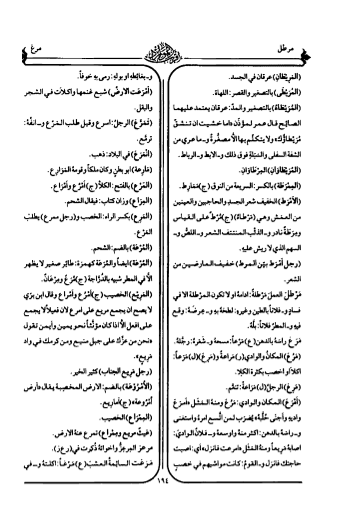 مرطل
مرغ
(المَرِيطَانِ) عرقان في الجسد.
(المُرَيْطَى) بالتصغير والقصر: اللهاة.
(المُرَيْطَاءُ) بالتصغير والمدّ: عرقان يعتمد عليهما
الصائح قال عمر لمؤذّن: أما خشيت ان تنشقّ
مُرَيْطَاؤُكَ ولا يتكلّم بها الاّ مصغّرة وـ ما عري من
الشفة السفلى والعنفقة فوق ذلك وـ الابط وـ الرباط.
(المُرَيْطَاوَانِ) المِرْطَاوَانِ.
(المِمْرَطَة) بالكسر: السريعة من النوق (ج) مَمَارِط.
(الأَمْرَط) الخفيف شعر الجسد والحاجبين والعينين
من العمش وهي (مَرْطَاء) (ج) مُرْط على القياس
ومِرَطَة نادر وـ الذئب المنتتف الشعر وـ اللصّ وـ
السهم الذي لا ريش عليه.
(رجل أَمْرَط بيّن المرط) خفيف العارضين من
الشعر.
مَرْطَلَ العملَ مَرْطَلَةً: ادامه او لا تكون المرطلة الا في
فساد وـ فلاناً بالطين وغيره: لطخه به وـ عِرْضَه: وقع
فيه وـ المطر فلاناً: بلّه.
مَرَعَ راسَهُ بالدهن (ع) مَرْعاً: مسحه وـ شعرَه: رجّله.
مَرُعَ المكانُ والوادي (ر) مَرَاعَةً و (مَرِعَ) (ل) مَرَعاً:
اكلأ او اخصب بكثرة الكلا.
(مَرِعَ) الرجلُ (ل) مَرَاعاً: تنعّم.
(أَمْرَعَ) المكان والوادي: مَرُعَ ومنه المثل «أمرَعَ
واديه وأجنى حُلَّبُه» يُضرب لمن اتّسع امره واستغنى
وـ راسَه بالدهن: اكثر منه واوسعه وـ فلانٌ الوادي:
اصابه مَرِيعاً ومنه المثل «امرعت فانزل» أي: اصبت
حاجتك فانزل وـ القومُ: كانت مواشيهم في خصب
وـ بغائطه او بوله: رمى به خوفاً.
(أمْرَعَت الارضُ) شبع غنمها واكلات في الشجر
والبقل.
(تَمَرَّعَ) الرجلُ: اسرع وقيل طلب المَرْع وـ انفُه:
ترمّع.
(انْمَرَعَ) في البلاد: ذهب.
(مَارِعَةُ) ابو بطن وكان ملكاً وقومُهُ المَوَارِع.
(المَرْع) بالفتح: الكلأ (ج) أَمْرُع وأَمْرَاع.
(المِرَاع) وزان كتاب: فيقال الشحم.
(المَرِع) بكسر الراء: الخصب و (رجل ممرع) يطلب
المَرْع.
(المُرْعَة) بالضم: الشحم.
(المُرْعَة) ايضاً والمُرَعَة كهمزة: طائر صغير لا يظهر
الاّ في المطر شبيه بالدُّرَّاجة (ج) مُرَع ومِرْعَان.
(المَرِيْع) الخصيب (ج) أَمْرُع وأَمْرَاع وقال ابن بري
لا يصح ان يجمع مريع على امرع لان فعيلاً لا يجمع
على افعل الاّ اذا كان مؤنّثاً نحو يمين وأيمن تقول
«نحن من عزّك على جبل منيع ومن كرمك في واد
مَرِيع».
(رجل مَريع الجناب) كثير الخير.
(الأُمْرُوْعَة) بالضم: الارض المخصبة يقال «أرض
أمروعة» (ج) أَمَارِيع.
(المِمْرَاع) الخصيب.
(غيث مريع ومِمْرَاع) تمرع عنه الارض.
مرعز المرعزّ واخواته ذُكرت في (رع ز).
مَرَغَت السائمةُ العشبَ (ع) مَرْغاً: اكلته وـ في
١٩٤